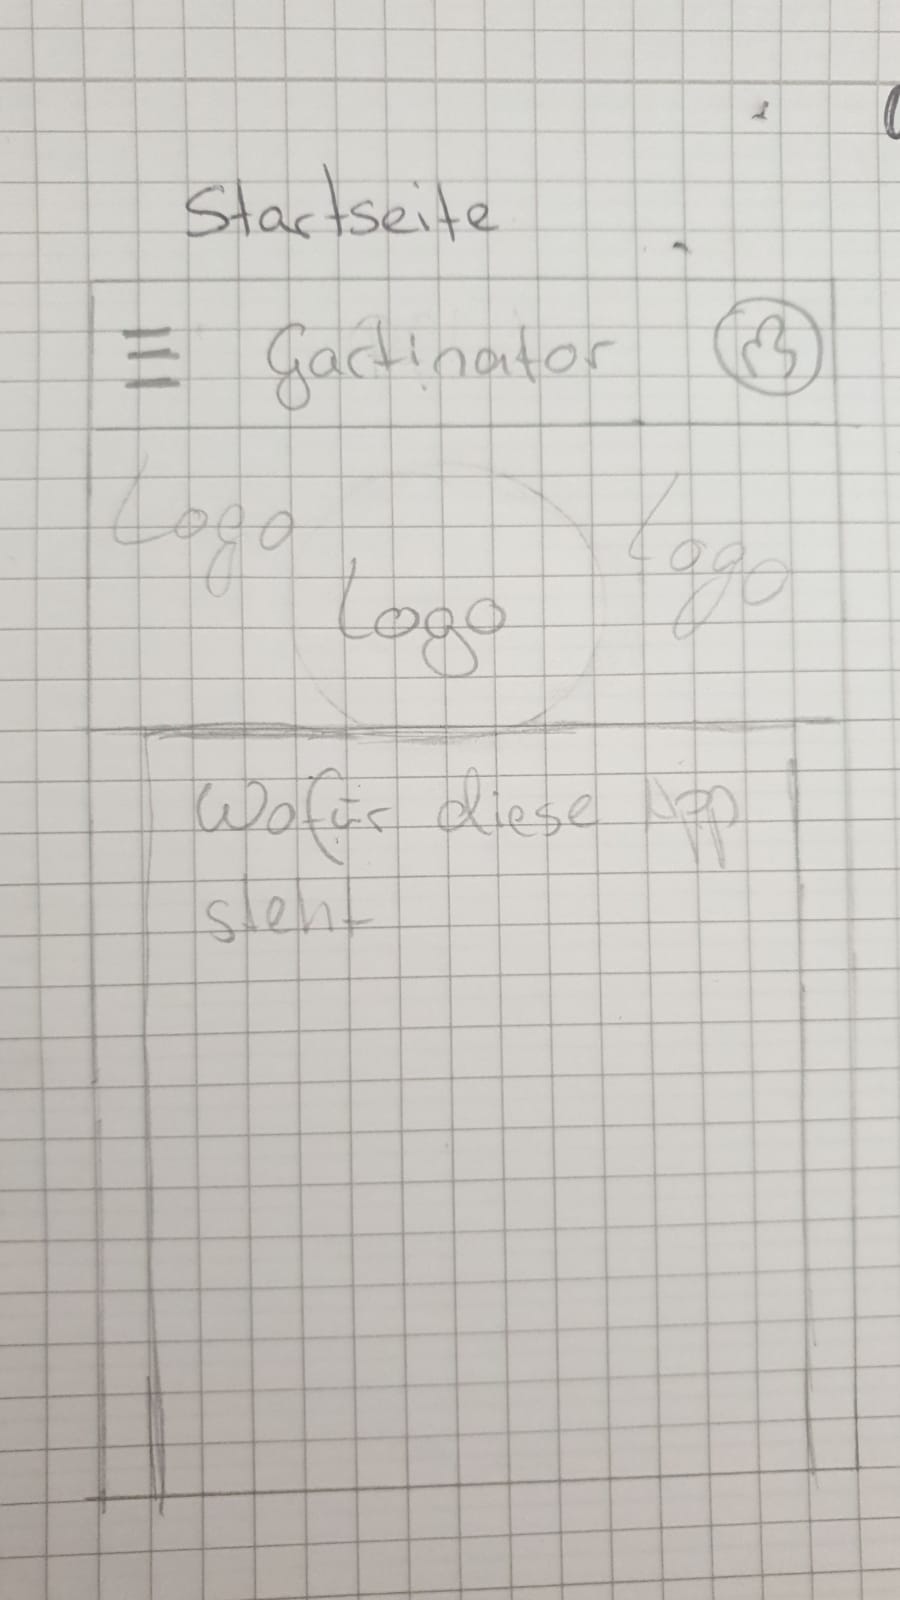 Startseite
Gartinator
Logo
Logo
Logo
Wofür diese App
steht